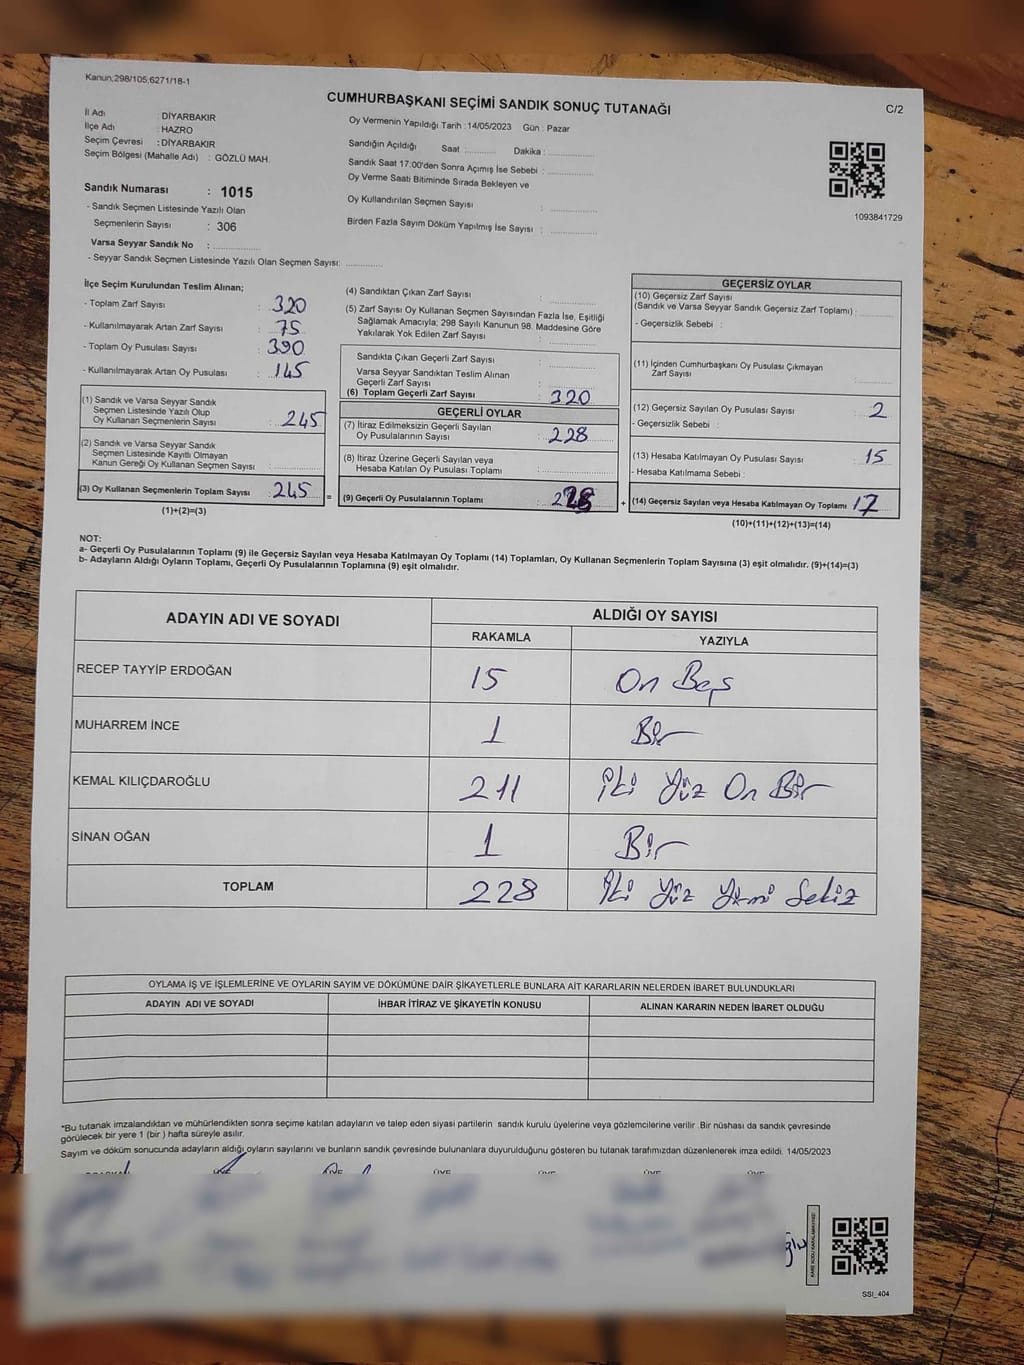 Kanun;298/105;6271/18-1
CUMHURBAŞKANI SEÇİMİ SANDIK SONUÇ TUTANAĞI
C/2
İl Adı : DİYARBAKIR
İlçe Adı : HAZRO
Seçim Çevresi : DİYARBAKIR
Seçim Bölgesi (Mahalle Adı) : GÖZLÜ MAH.
Oy Vermenin Yapıldığı Tarih : 14/05/2023 Gün : Pazar
Sandığın Açıldığı Saat :............ Dakika :...............
Sandık Saat 17:00'den Sonra Açımış İse Sebebi :...............
Oy Verme Saati Bitiminde Sırada Bekleyen ve
Oy Kullandırılan Seçmen Sayısı :...............
Birden Fazla Sayım Döküm Yapılmış İse Sayısı :...............
1093841729
Sandık Numarası : 1015
- Sandık Seçmen Listesinde Yazılı Olan
Seçmenlerin Sayısı : 306
Varsa Seyyar Sandık No :...............
- Seyyar Sandık Seçmen Listesinde Yazılı Olan Seçmen Sayısı:............
İlçe Seçim Kurulundan Teslim Alınan;
- Toplam Zarf Sayısı : 320
- Kullanılmayarak Artan Zarf Sayısı : 75
- Toplam Oy Pusulası Sayısı : 390
- Kullanılmayarak Artan Oy Pusulası : 145
(1) Sandık ve Varsa Seyyar Sandık
Seçmen Listesinde Yazılı Olup
Oy Kullanan Seçmenlerin Sayısı : 245
(2) Sandık ve Varsa Seyyar Sandık
Seçmen Listesinde Kayıtlı Olmayan
Kanun Gereği Oy Kullanan Seçmen Sayısı :...............
(3) Oy Kullanan Seçmenlerin Toplam Sayısı : 245
(1)+(2)=(3)
=
(4) Sandıktan Çıkan Zarf Sayısı :...............
(5) Zarf Sayısı Oy Kullanan Seçmen Sayısından Fazla İse, Eşitliği
Sağlamak Amacıyla; 298 Sayılı Kanunun 98. Maddesine Göre
Yakılarak Yok Edilen Zarf Sayısı :...............
Sandıkta Çıkan Geçerli Zarf Sayısı :...............
Varsa Seyyar Sandıktan Teslim Alınan
Geçerli Zarf Sayısı :...............
(6) Toplam Geçerli Zarf Sayısı : 320
GEÇERLİ OYLAR
(7) İtiraz Edilmeksizin Geçerli Sayılan
Oy Pusulalarının Sayısı : 228
(8) İtiraz Üzerine Geçerli Sayılan veya
Hesaba Katılan Oy Pusulası Toplamı :...............
(9) Geçerli Oy Pusulalarının Toplamı : 228
+
GEÇERSİZ OYLAR
(10) Geçersiz Zarf Sayısı
(Sandık ve Varsa Seyyar Sandık Geçersiz Zarf Toplamı) :............
- Geçersizlik Sebebi :
(11) İçinden Cumhurbaşkanı Oy Pusulası Çıkmayan
Zarf Sayısı :............
(12) Geçersiz Sayılan Oy Pusulası Sayısı : 2
- Geçersizlik Sebebi :
(13) Hesaba Katılmayan Oy Pusulası Sayısı : 15
- Hesaba Katılmama Sebebi :
(14) Geçersiz Sayılan veya Hesaba Katılmayan Oy Toplamı : 17
(10)+(11)+(12)+(13)=(14)
NOT:
a- Geçerli Oy Pusulalarının Toplamı (9) ile Geçersiz Sayılan veya Hesaba Katılmayan Oy Toplamı (14) Toplamları, Oy Kullanan Seçmenlerin Toplam Sayısına (3) eşit olmalıdır. (9)+(14)=(3)
b- Adayların Aldığı Oyların Toplamı, Geçerli Oy Pusulalarının Toplamına (9) eşit olmalıdır.
ADAYIN ADI VE SOYADI
ALDIĞI OY SAYISI
RAKAMLA YAZIYLA
RECEP TAYYİP ERDOĞAN 15 On Beş
MUHARREM İNCE 1 Bir
KEMAL KILIÇDAROĞLU 211 İki Yüz On Bir
SİNAN OĞAN 1 Bir
TOPLAM 228 İki Yüz Yirmi Sekiz
OYLAMA İŞ VE İŞLEMLERİNE VE OYLARIN SAYIM VE DÖKÜMÜNE DAİR ŞİKAYETLERLE BUNLARA AİT KARARLARIN NELERDEN İBARET BULUNDUKLARI
ADAYIN ADI VE SOYADI İHBAR İTİRAZ VE ŞİKAYETİN KONUSU ALINAN KARARIN NEDEN İBARET OLDUĞU
*Bu tutanak imzalandıktan ve mühürlendikten sonra seçime katılan adayların ve talep eden siyasi partilerin sandık kurulu üyelerine veya gözlemcilerine verilir .Bir nüshası da sandık çevresinde
görülecek bir yere 1 (bir ) hafta süreyle asılır.
Sayım ve döküm sonucunda adayların aldığı oyların sayılarını ve bunların sandık çevresinde bulunanlara duyurulduğunu gösteren bu tutanak tarafımızdan düzenlenerek imza edildi. 14/05/2023
ÜYE ÜYE ÜYE ÜYE ÜYE
KARE KODU KARALAMAYINIZ!
SSI_404